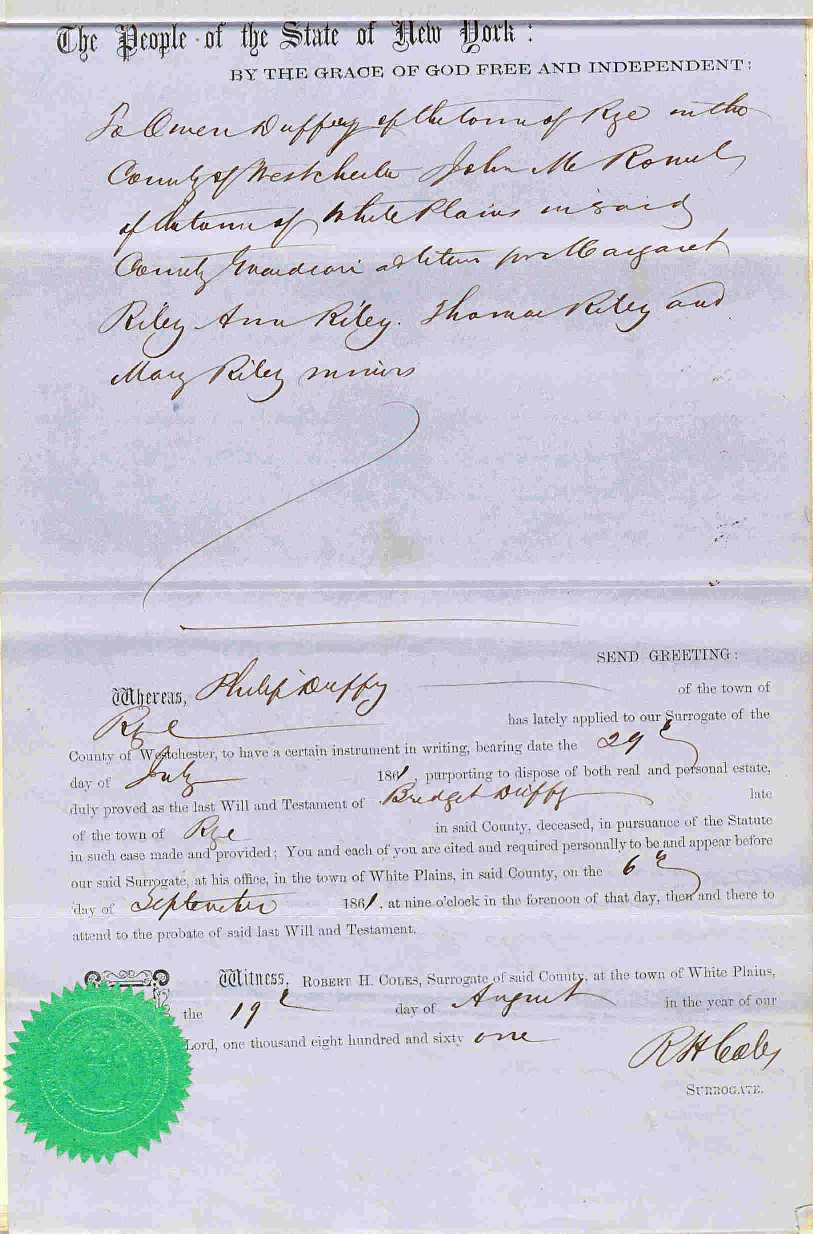 The People of the State of New York:
BY THE GRACE OF GOD FREE AND INDEPENDENT:
To Owen Duffey of the town of Rye in the
County of Westchester John Mc
of the town of White Plains in said
County Guardian ad litem for Margaret
Riley Ann Riley. Thomas Riley and
Mary Riley minors
SEND GREETING:
Whereas, Philip Duffy of the town of
Rye has lately applied to our Surrogate of the
County of Westchester, to have a certain instrument in writing, bearing date the 29th
day of July 1861, purporting to dispose of both real and personal estate,
duly proved as the last Will and Testament of Bridget Duffy late
of the town of Rye in said County, deceased, in pursuance of the Statute
in such case made and provided; You and each of you are cited and required personally to be and appear before
our said Surrogate, at his office, in the town of White Plains, in said County, on the 6th
day of September 1861, at nine o'clock in the forenoon of that day, then and there to
attend to the probate of said last Will and Testament.
Witness, ROBERT H. COLES, Surrogate of said County, at the town of White Plains,
the 19th day of August in the year of our
Lord, one thousand eight hundred and sixty one
R H Coles
SURROGATE.